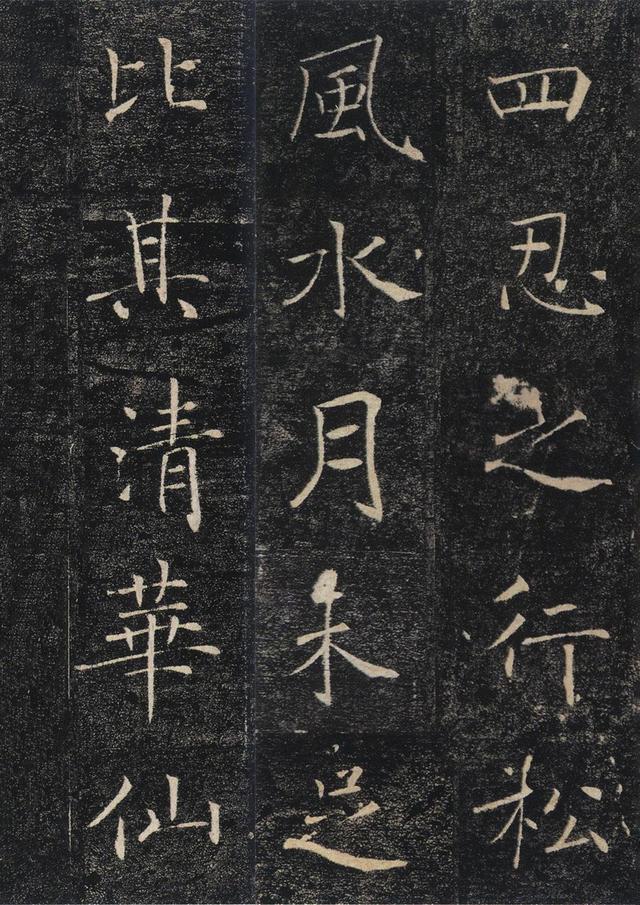 四忍之行松
風水月未足
比其清華仙